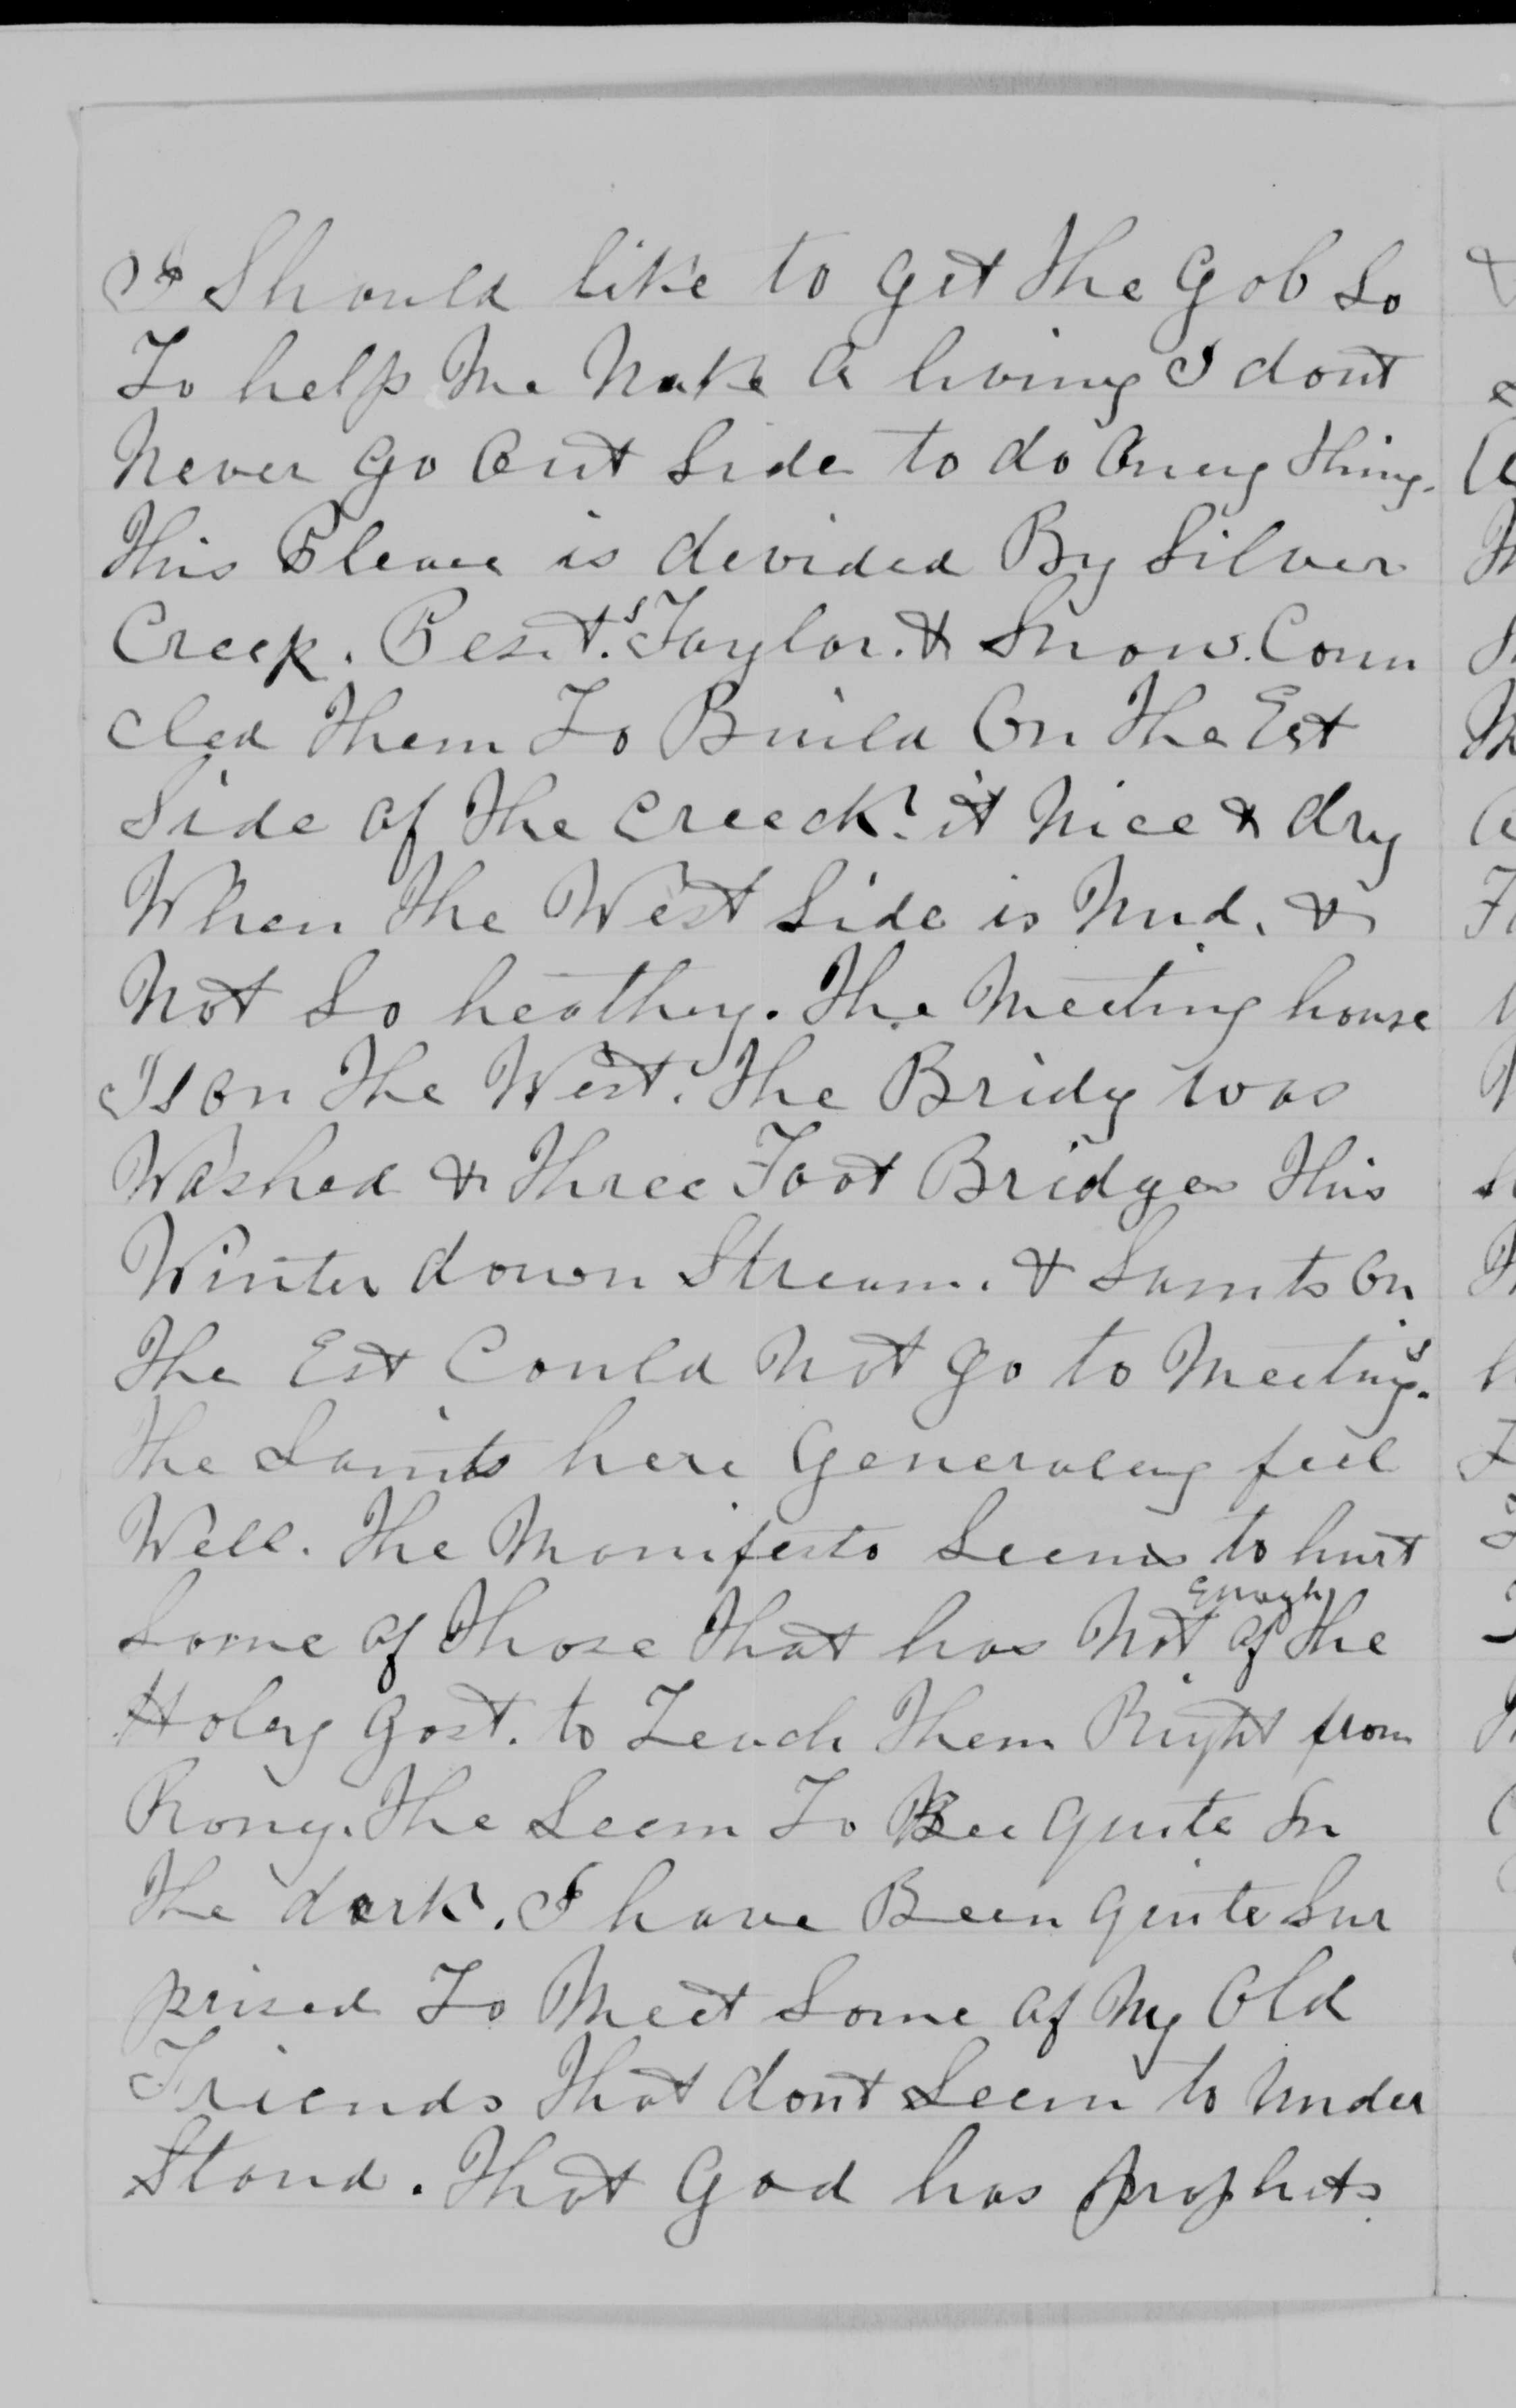 I Should like to get the gob So
To help Me Make A living I dont
Never go Out Side to do Aney thing.
This Pleace is devided By Silver
Creek. Pesit.s Taylor. & Snow. Coun
cled Them To Build On The Est
Side of the creeck. it Nice & dry
When the West Side is Mud. &
Not So healthy. The Meeting house
Is on The West. The Bridg was
Washed & Three Foot Bridges This
Winter down Stream. & Saints On
The Est Could Not go to Meetings.
The Saints here Generaley feel
Well. The Manifesto Seems to hurt
Some of Those That has Not enough of The
Holey gost. to Teach Them Right from
Rong. The Seem To Bee quite In
The dark. I have Been quite Sur
prised To Meet Some of My Old
Friends That dont Seem to Under
Stand. That God has prophets